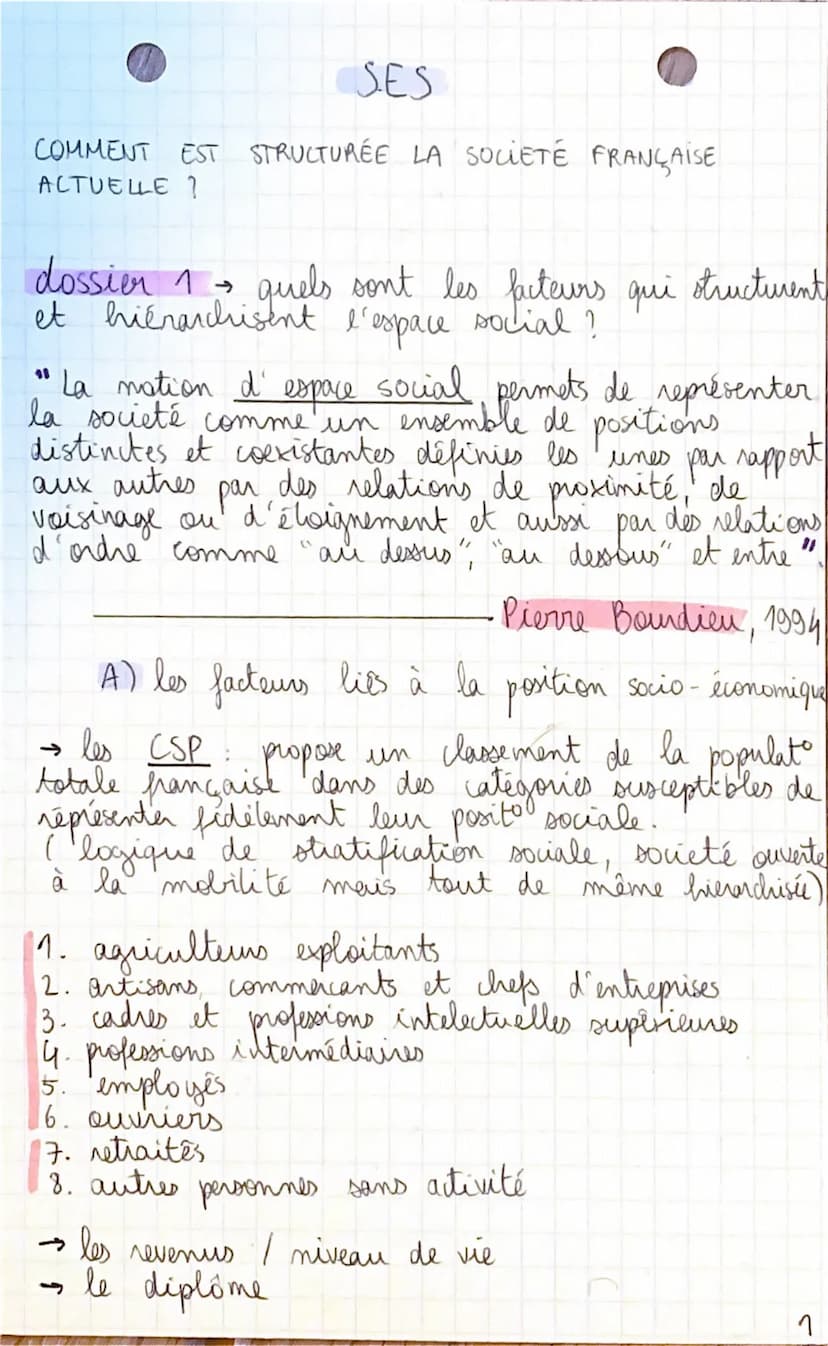 SES
COMMENT EST STRUCTURÉE LA SOCIETÉ FRANÇAISE
ACTUELLE ?
dossier 1 → quels sont les facteurs qui structurent
et hiérarchisent l'espace social ?
" La notion d'espace social permets de représenter
la societé comme un ensemble de positions
distinctes et coexistantes définies les unes par rapport
aux autres par des relations de proximité, de
voisinage ou d'éloignement et aussi par des relations
d'ordre comme "au dessus", "au dessous" et entre ".
Pierre Bourdieu, 1994
A) les facteurs liés à la position socio-économique
→ les CSP : propose un classement de la populat°
totale française dans des catégories susceptibles de
représenter fidèlement leur posit° sociale.
( logique de stratification sociale, societé ouverte
à la mobilité mais tout de même hierarchisée)
1. agriculteurs exploitants
2. artisans, commercants et chefs d'entreprises
3. cadres et professions intelectuelles supérieures
4. professions intermédiaires
5. employés
6. ouvriers
7. retraités
8. autres personnes sans activité
→ les revenus / niveau de vie
→ le diplôme
1